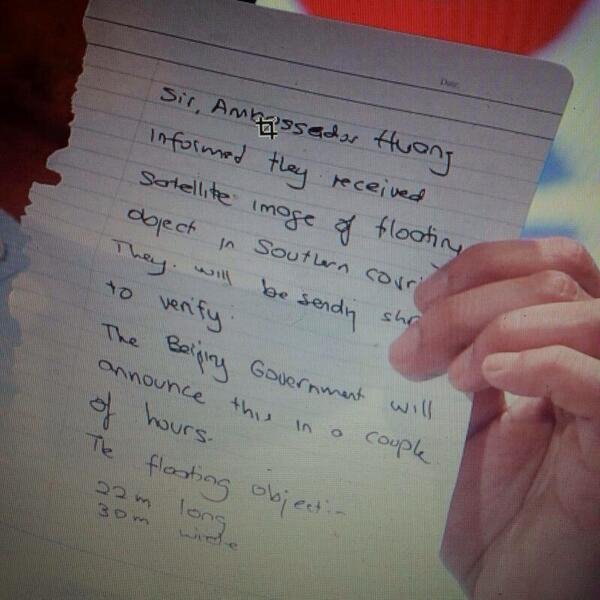 Date:
Sir, Ambassador Huang
informed they received
Satellite image of floating
object in Southern corri
They will be sending
to verify.
The Beijing Government will
announce this in a couple
of hours.
The floating object
22m long
30m wide